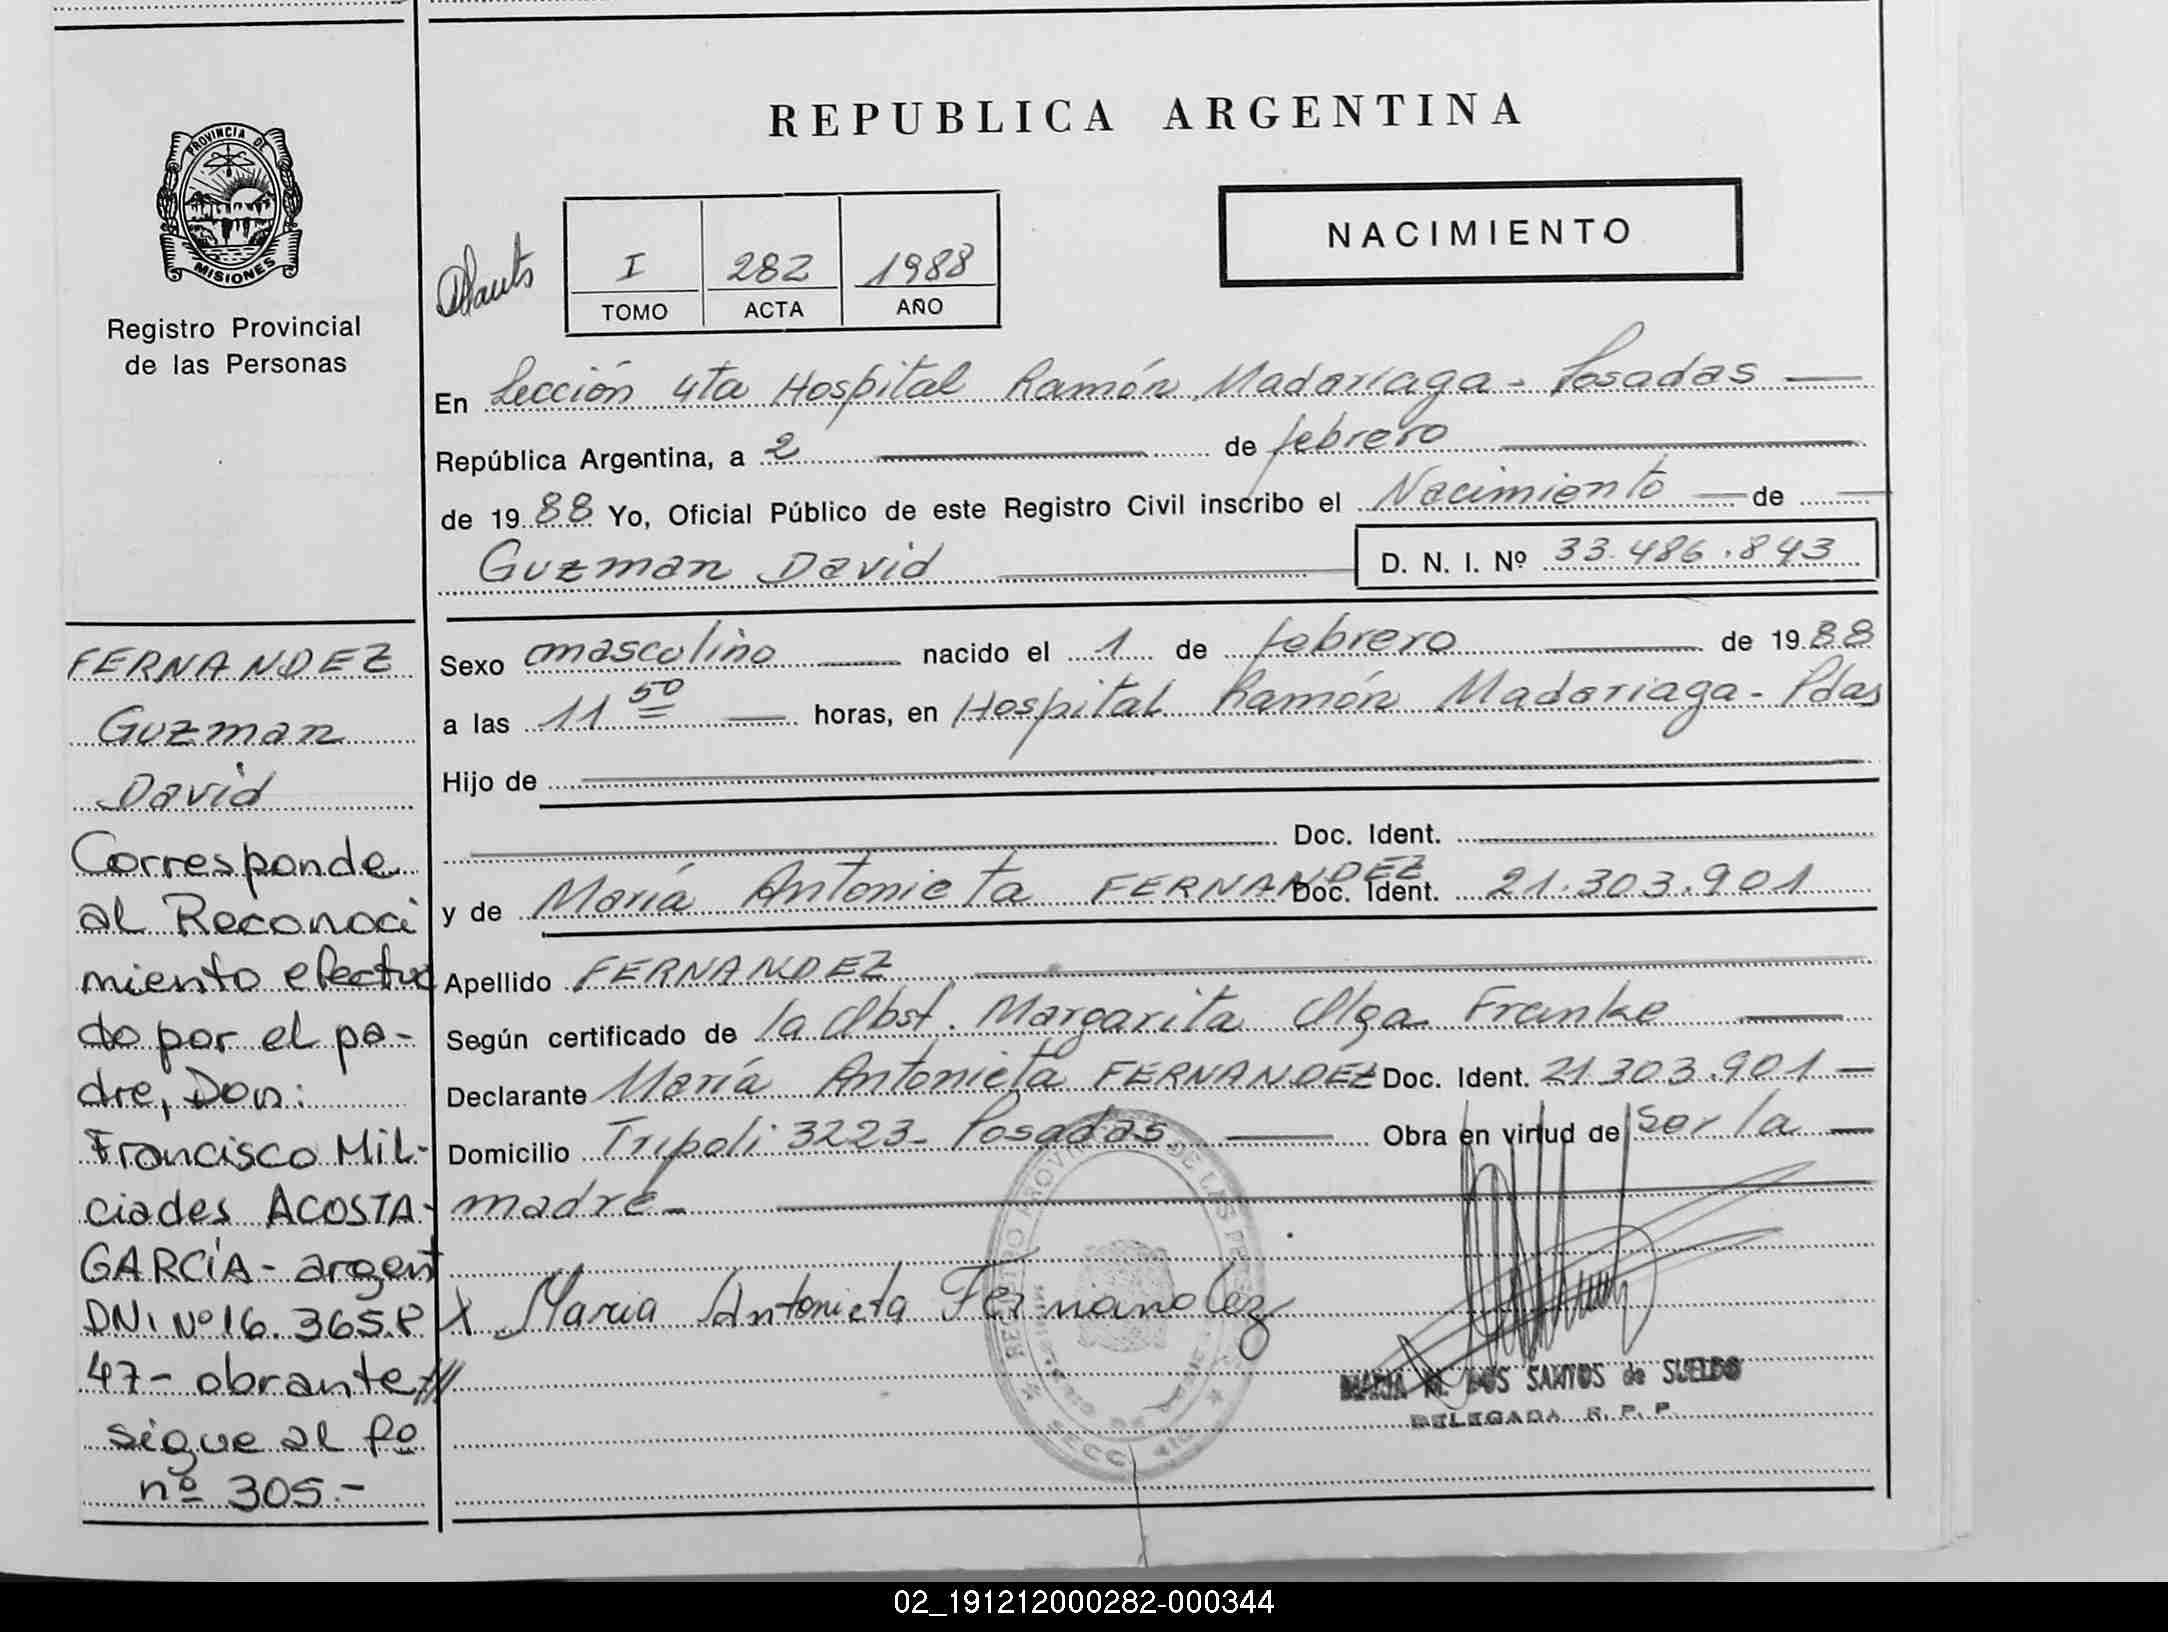 PROVINCIA DE
MISIONES
Registro Provincial
de las Personas
REPUBLICA ARGENTINA
NACIMIENTO
I 282 1988
TOMO ACTA AÑO
En Sección 4ta Hospital Ramón Madariaga - Posadas
República Argentina, a 2 de febrero
de 1988 Yo, Oficial Público de este Registro Civil inscribo el Nacimiento de
Guzman David D. N. I. Nº 33.486.843
Sexo masculino nacido el 1 de febrero de 1988
a las 11 50 horas, en Hospital Ramón Madariaga - Pdas
Hijo de
Doc. Ident.
y de María Antonieta FERNANDEZ Doc. Ident. 21.303.901
Apellido FERNANDEZ
Según certificado de la Obst. Margarita Olga Franke
Declarante María Antonieta FERNANDEZ Doc. Ident. 21.303.901
Domicilio Tripoli 3223 - Posadas Obra en virtud de ser la
madre -
X Maria Antonieta Fernandez
MARIA M. DOS SANTOS de SUELDO
DELEGADA R. P. P.
FERNANDEZ
Guzman
David
Corresponde
al Reconoci
miento efectua
do por el pa-
dre, Don:
Francisco Mil-
ciades ACOSTA-
GARCÍA - argent
DNI Nº 16.365.P
47 - obrante ///
sigue al fº
nº 305.-
02_191212000282-000344